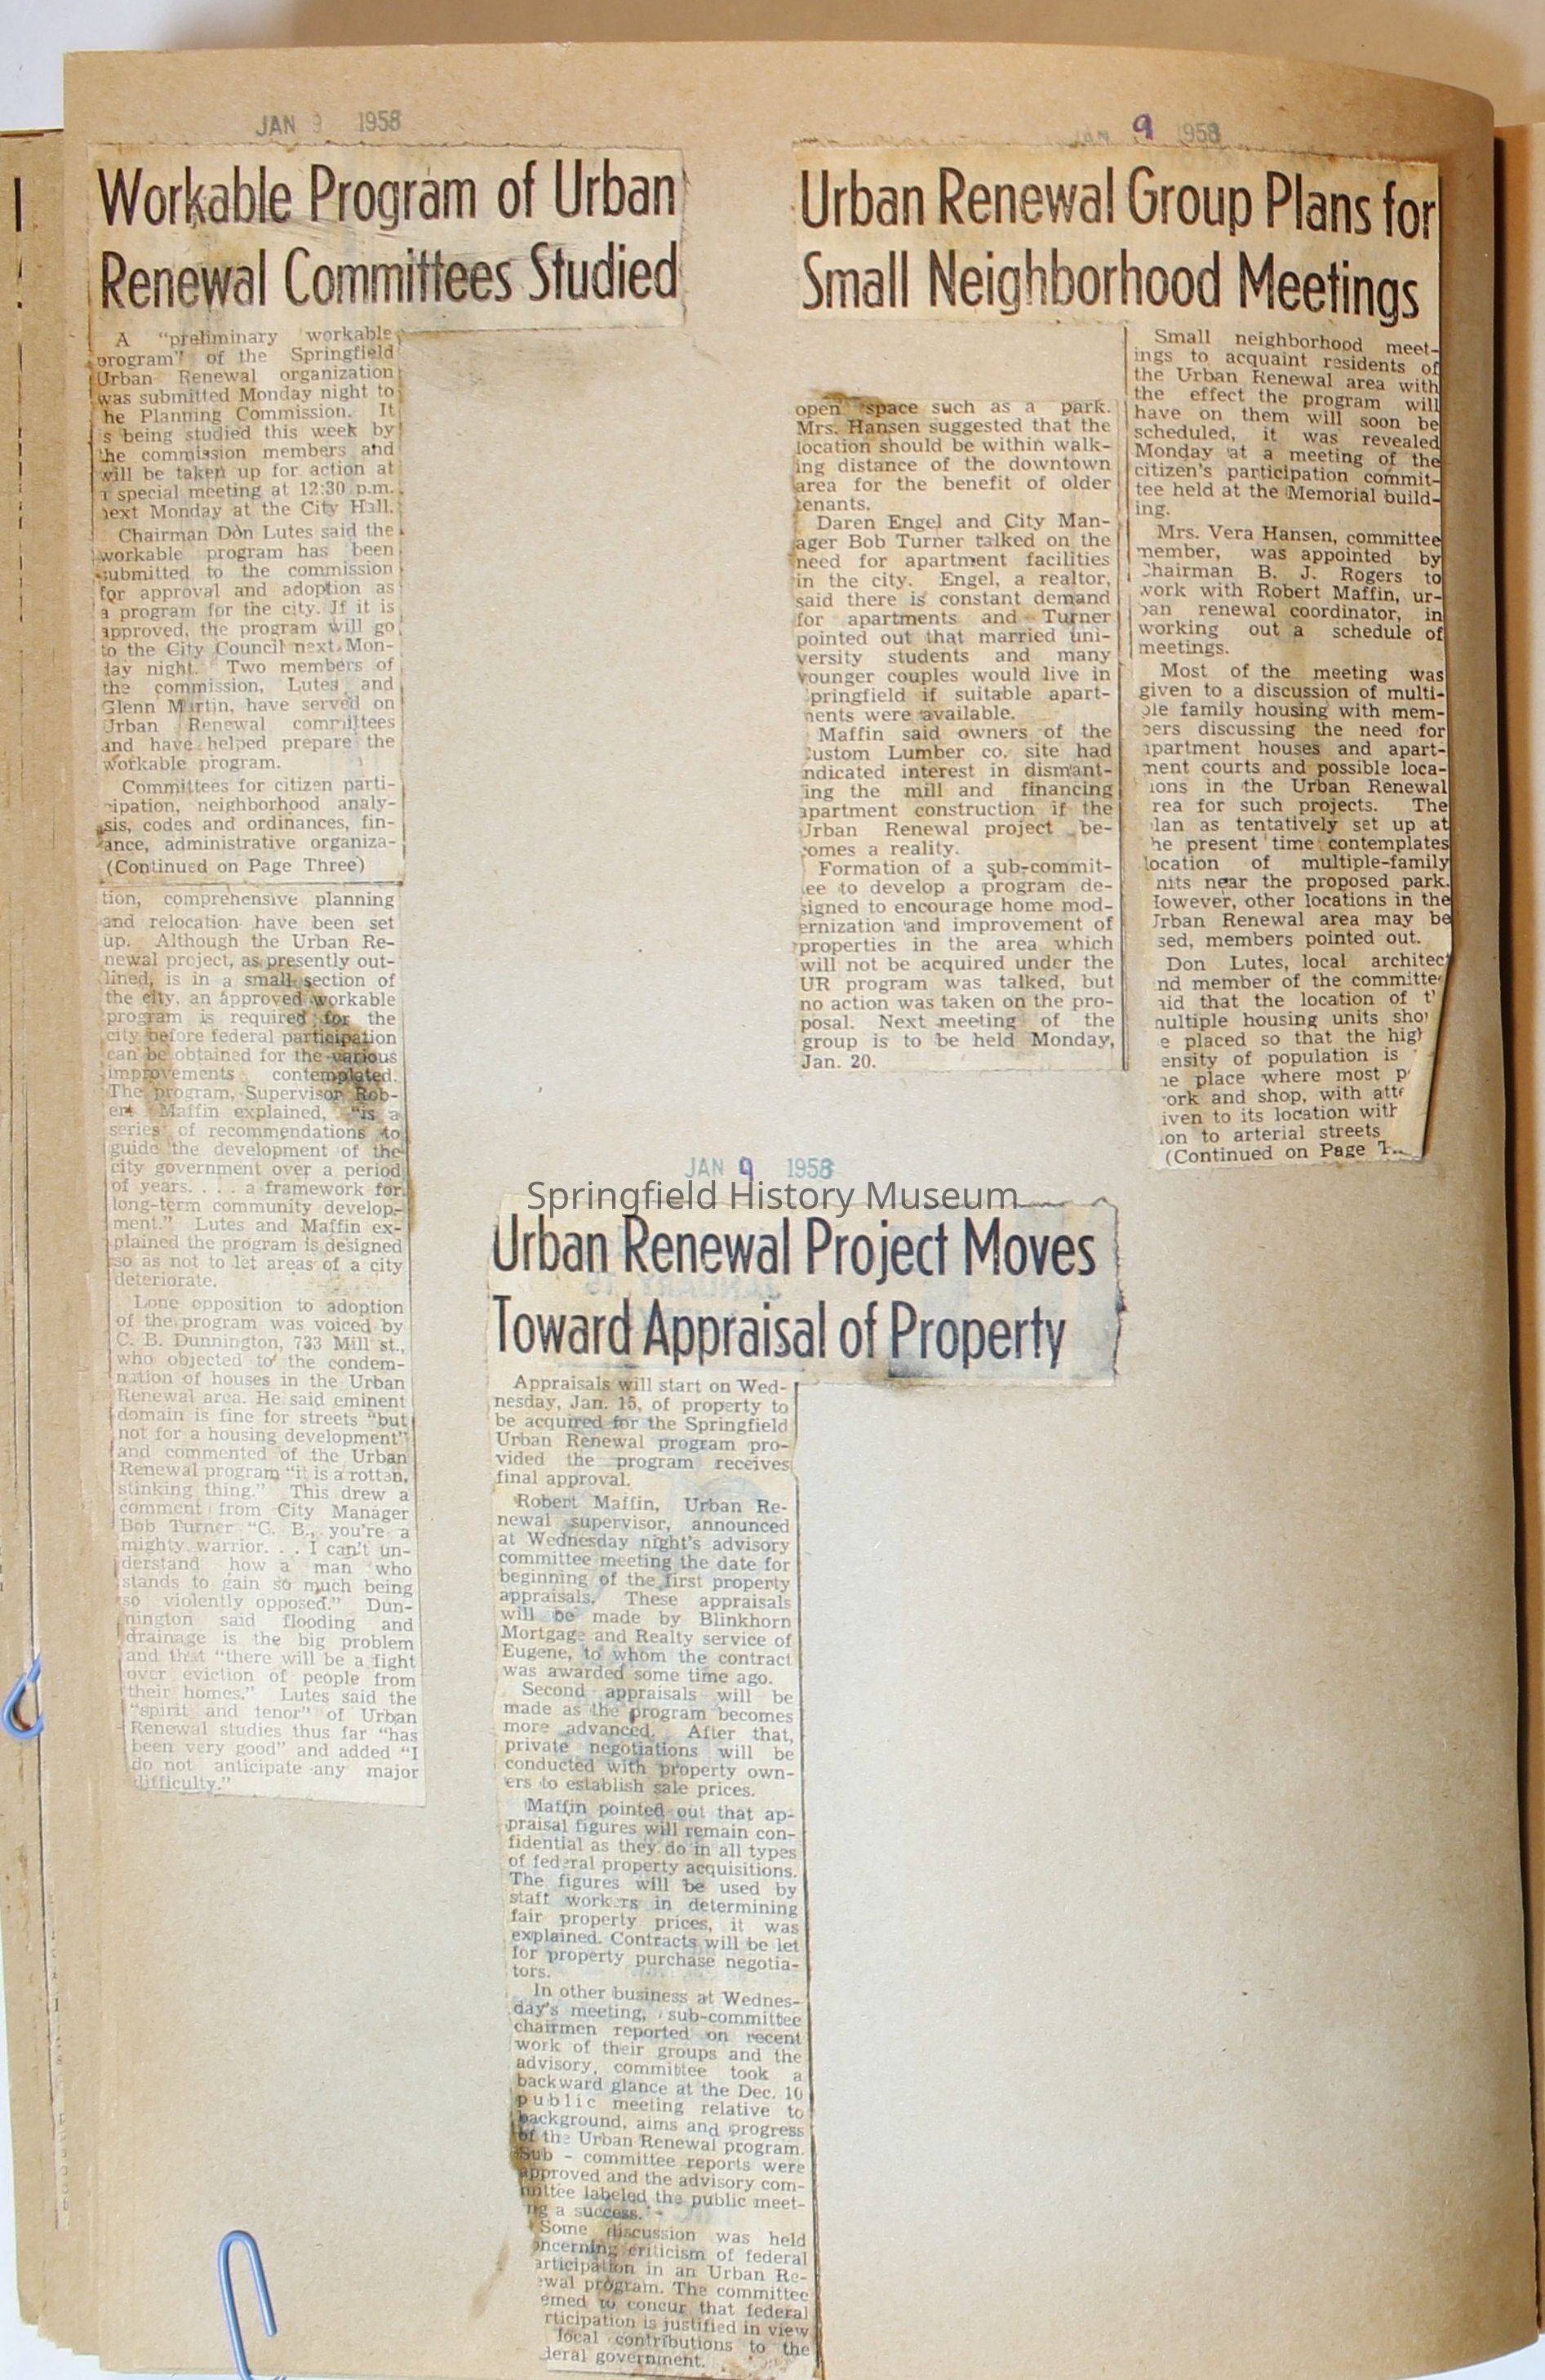 JAN 9 1958
Workable Program of Urban
Renewal Committees Studied
A "preliminary workable
program" of the Springfield
Urban Renewal organization
was submitted Monday night to
he Planning Commission. It
s being studied this week by
the commission members and
will be taken up for action at
a special meeting at 12:30 p.m.
next Monday at the City Hall.
Chairman Don Lutes said the
workable program has been
submitted to the commission
for approval and adoption as
a program for the city. If it is
approved, the program will go
to the City Council next Mon-
day night. Two members of
the commission, Lutes and
Glenn Martin, have served on
Urban Renewal committees
and have helped prepare the
workable program.
Committees for citizen parti-
cipation, neighborhood analy-
sis, codes and ordinances, fin-
ance, administrative organiza-
(Continued on Page Three)
tion, comprehensive planning
and relocation have been set
up. Although the Urban Re-
newal project, as presently out-
lined, is in a small section of
the city, an approved workable
program is required for the
city before federal participation
can be obtained for the various
improvements contemplated.
The program, Supervisor Rob-
ert Maffin explained, "is a
series of recommendations to
guide the development of the
city government over a period
of years. . . . a framework for
long-term community develop-
ment." Lutes and Maffin ex-
plained the program is designed
so as not to let areas of a city
deteriorate.
Lone opposition to adoption
of the program was voiced by
C. B. Dunnington, 733 Mill st.,
who objected to the condem-
nation of houses in the Urban
Renewal area. He said eminent
domain is fine for streets "but
not for a housing development"
and commented of the Urban
Renewal program "it is a rottan,
stinking thing." This drew a
comment from City Manager
Bob Turner "C. B., you're a
mighty warrior. . . I can't un-
derstand how a man who
stands to gain so much being
so violently opposed." Dun-
nington said flooding and
drainage is the big problem
and that "there will be a fight
over eviction of people from
their homes." Lutes said the
"spirit and tenor" of Urban
Renewal studies thus far "has
been very good" and added "I
do not anticipate any major
difficulty."
JAN 9 1958
Urban Renewal Group Plans for
Small Neighborhood Meetings
Small neighborhood meet-
ings to acquaint residents of
the Urban Renewal area with
the effect the program will
have on them will soon be
scheduled, it was revealed
Monday at a meeting of the
citizen's participation commit-
tee held at the Memorial build-
ing.
Mrs. Vera Hansen, committee
member, was appointed by
Chairman B. J. Rogers to
work with Robert Maffin, ur-
ban renewal coordinator, in
working out a schedule of
meetings.
Most of the meeting was
given to a discussion of multi-
ple family housing with mem-
bers discussing the need for
apartment houses and apart-
ment courts and possible loca-
ions in the Urban Renewal
rea for such projects. The
lan as tentatively set up at
he present time contemplates
location of multiple-family
nits near the proposed park.
However, other locations in the
Urban Renewal area may be
sed, members pointed out.
Don Lutes, local architect
nd member of the committee
aid that the location of t
multiple housing units sho
e placed so that the high
ensity of population is
he place where most p
ork and shop, with atte
iven to its location with
ion to arterial streets
(Continued on Page T
open space such as a park.
Mrs. Hansen suggested that the
location should be within walk-
ing distance of the downtown
area for the benefit of older
tenants.
Daren Engel and City Man-
ager Bob Turner talked on the
need for apartment facilities
in the city. Engel, a realtor,
said there is constant demand
for apartments and Turner
pointed out that married uni-
versity students and many
younger couples would live in
Springfield if suitable apart-
ments were available.
Maffin said owners of the
Custom Lumber co. site had
indicated interest in dismant-
ling the mill and financing
apartment construction if the
Urban Renewal project be-
comes a reality.
Formation of a sub-commit-
tee to develop a program de-
signed to encourage home mod-
ernization and improvement of
properties in the area which
will not be acquired under the
UR program was talked, but
no action was taken on the pro-
posal. Next meeting of the
group is to be held Monday,
Jan. 20.
JAN 9 1958
Springfield History Museum
Urban Renewal Project Moves
Toward Appraisal of Property
Appraisals will start on Wed-
nesday, Jan. 15, of property to
be acquired for the Springfield
Urban Renewal program pro-
vided the program receives
final approval.
Robert Maffin, Urban Re-
newal supervisor, announced
at Wednesday night's advisory
committee meeting the date for
beginning of the first property
appraisals. These appraisals
will be made by Blinkhorn
Mortgage and Realty service of
Eugene, to whom the contract
was awarded some time ago.
Second appraisals will be
made as the program becomes
more advanced. After that,
private negotiations will be
conducted with property own-
ers to establish sale prices.
Maffin pointed out that ap-
praisal figures will remain con-
fidential as they do in all types
of federal property acquisitions.
The figures will be used by
staff workers in determining
fair property prices, it was
explained. Contracts will be let
for property purchase negotia-
tors.
In other business at Wednes-
day's meeting, sub-committee
chairmen reported on recent
work of their groups and the
advisory, committee took a
backward glance at the Dec. 10
public meeting relative to
background, aims and progress
of the Urban Renewal program.
Sub - committee reports were
approved and the advisory com-
mittee labeled the public meet-
ng a success.
Some discussion was held
oncerning criticism of federal
articipation in an Urban Re-
ewal program. The committee
emed to concur that federal
rticipation is justified in view
local contributions to the
deral government.